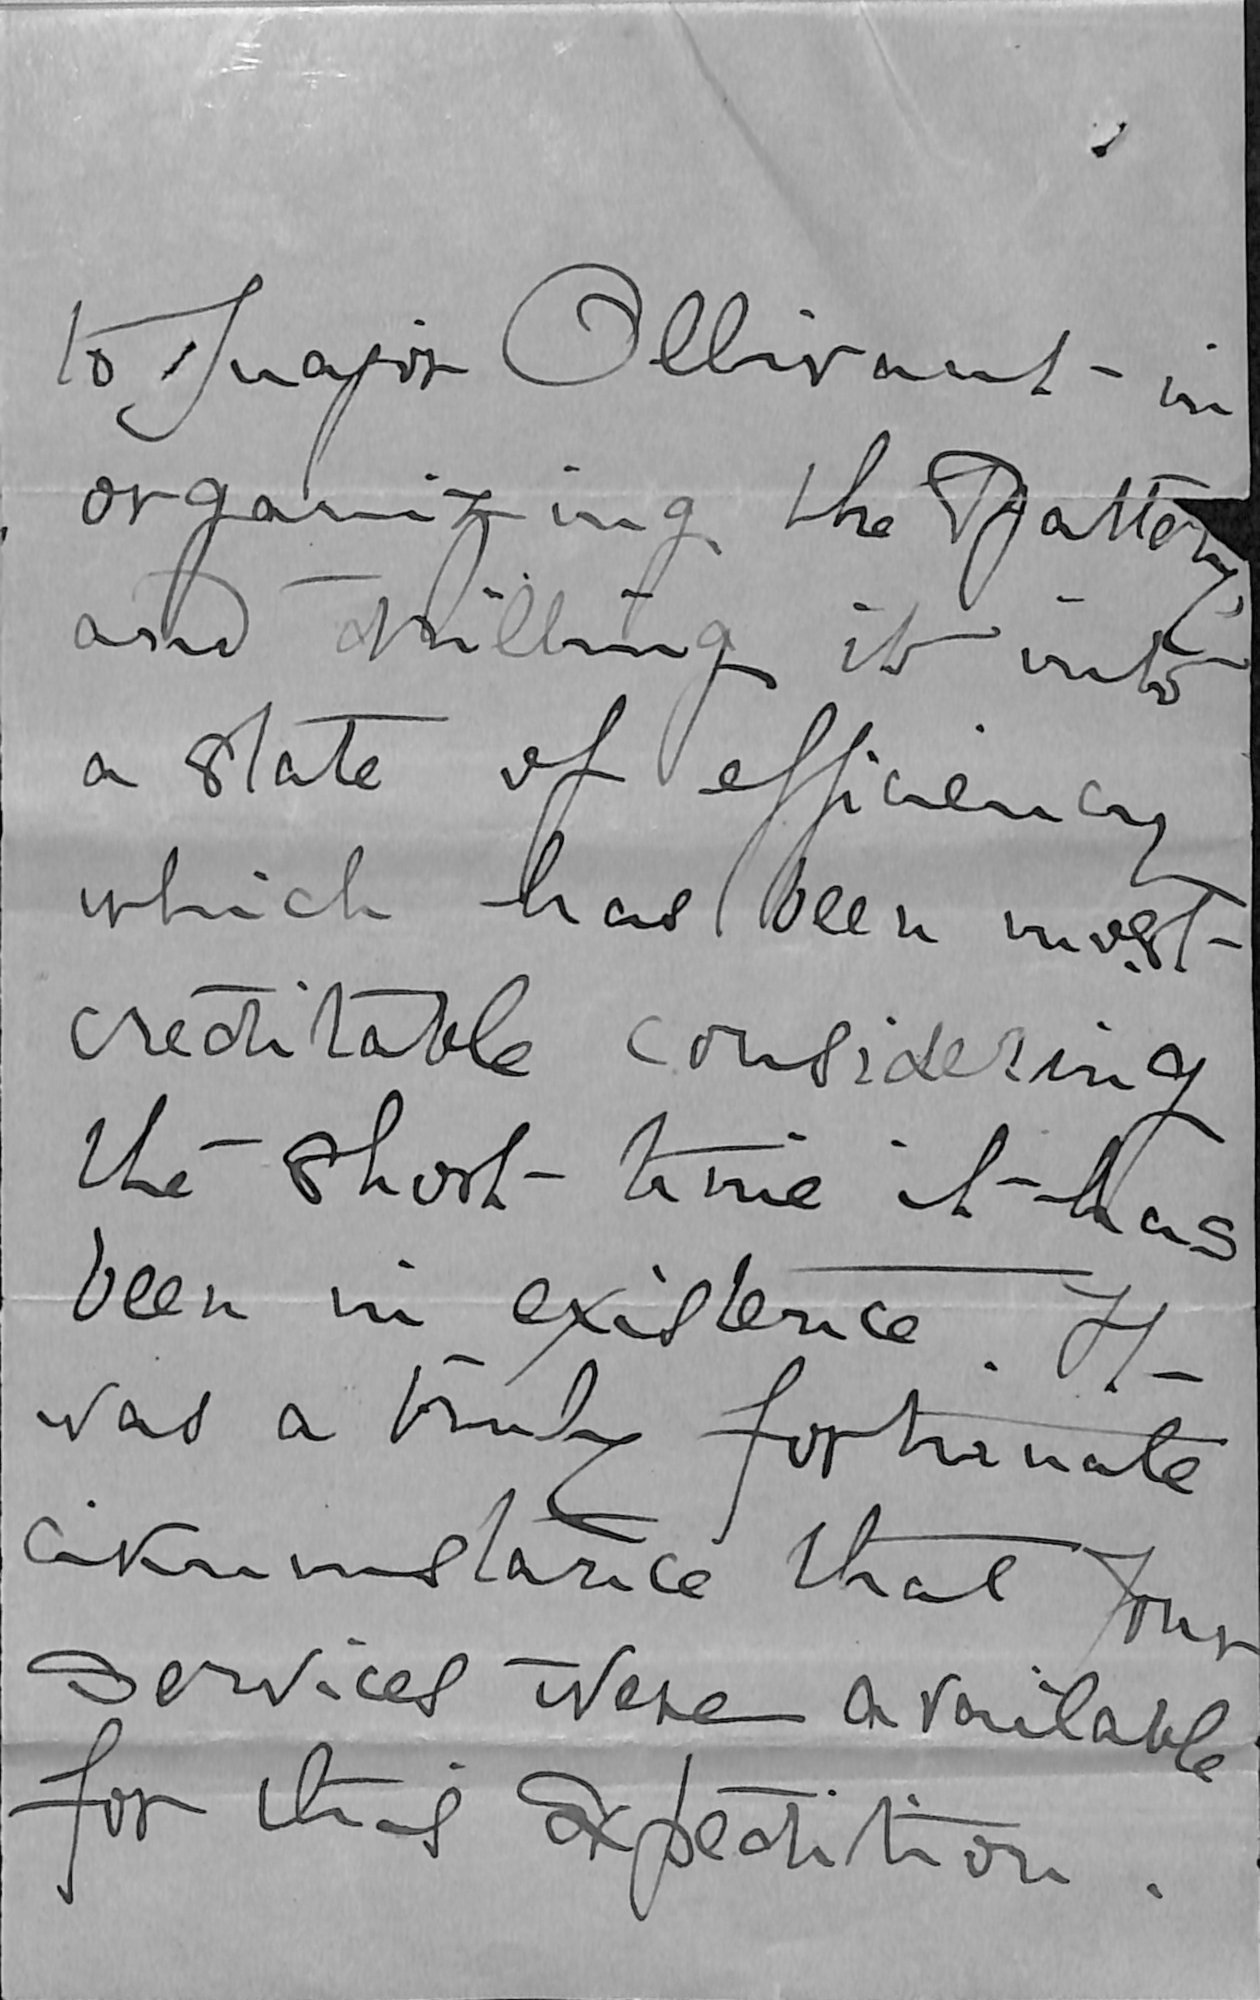 to Major Ollivant - in
organizing the Battery,
and drilling it into
a state of efficiency
which has been most
creditable considering
the short time it has
been in existence. It
was a truly fortunate
cirumstance that your
services were available
for this Expedition.